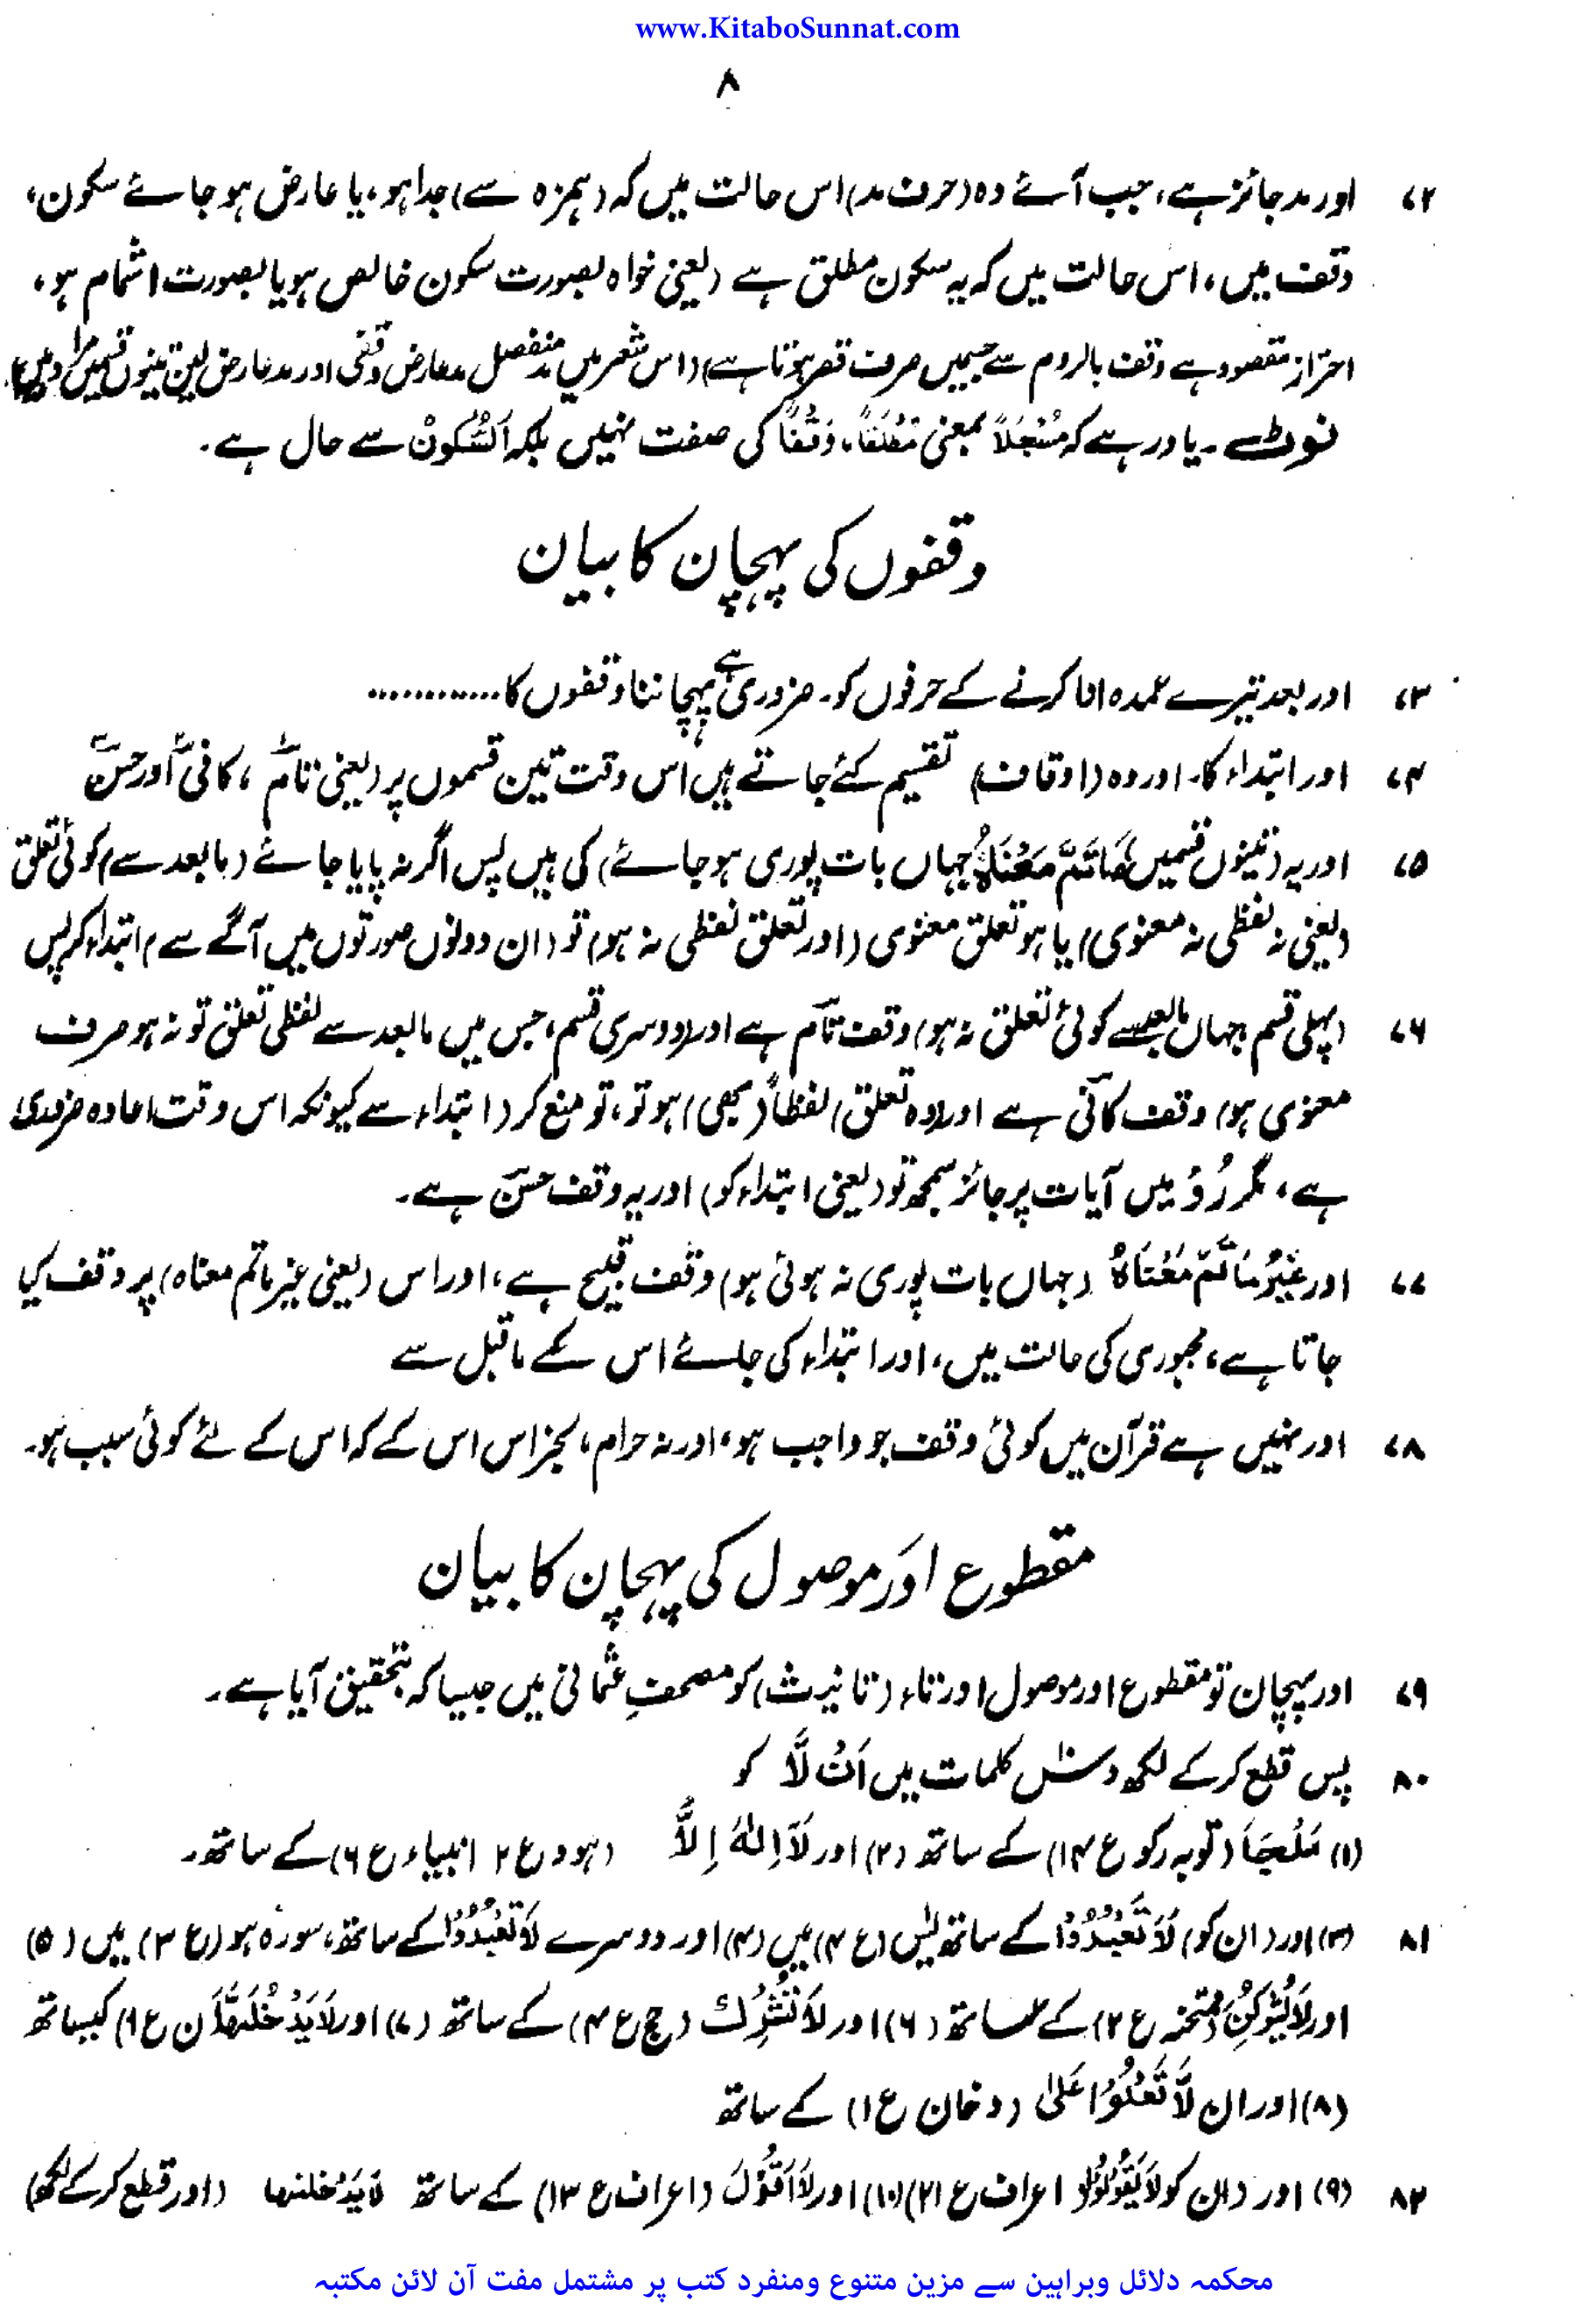 www.KitaboSunnat.com
۸
۷۲ اور مد جائز ہے، جب آئے وہ (حرف مد) اس حالت میں کہ (ہمزہ سے) جدا ہو، یا عارض ہو جائے سکون،
وقف میں، اس حالت میں کہ یہ سکون مطلق ہے (یعنی خواہ بصورت سکون خالص ہو یا بصورت اشمام ہو،
احتراز مقصود ہے وقف بالروم سے جسمیں صرف قصر ہوتا ہے) (اس شعر میں مد منفصل مد عارض وقفی اور مد عارض لین تینوں قسمیں مراد ہیں)
نوٹ ۔ یاد رہے کہ مُسْجَلاً بمعنی مُطْلَقاً، وَقْفاً کی صفت نہیں بلکہ اَلسُّکُونْ سے حال ہے۔
وقفوں کی پہچان کا بیان
۷۳ اور بعد تیرے عمدہ ادا کرنے کے حرفوں کو۔ ضروری ہے پہچاننا وقفوں کا ............
۷۴ اور ابتداء کا۔ اور وہ (اوقاف) تقسیم کئے جاتے ہیں اس وقت تین قسموں پر (یعنی تامؔ، کافیؔ اور حسنؔ
۷۵ اور یہ (تینوں قسمیں) مَاتَمَّ مَعْنَاہُ (جہاں بات پوری ہو جائے) کی ہیں پس اگر نہ پایا جائے (مابعد سے) کوئی تعلق
(یعنی نہ لفظی نہ معنوی) یا ہو تعلق معنوی (اور تعلق لفظی نہ ہو) تو (ان دونوں صورتوں میں آگے سے) ابتداء کر پس
۷۶ (پہلی قسم جہاں مابعد سے کوئی تعلق نہ ہو) وقف تام ہے اور (دوسری قسم، جس میں مابعد سے لفظی تعلق تو نہ ہو صرف
معنوی ہو) وقف کافی ہے اور (وہ تعلق) لفظاً (بھی) ہو تو، تو منع کر (ابتداء سے کیونکہ اس وقت اعادہ ضروری
ہے، مگر رُؤ میں آیات پر جائز سمجھ تو (یعنی ابتداء کو) اور یہ وقف حسن ہے۔
۷۷ اور غَیْرُ مَاتَمَّ مَعْنَاہُ (جہاں بات پوری نہ ہوئی ہو) وقف قبیح ہے، اور اس (یعنی غیر ماتم معناہ) پر وقف کیا
جاتا ہے، مجبوری کی حالت میں، اور ابتداء کی جائے اس کے ماقبل سے
۷۸ اور نہیں ہے قرآن میں کوئی وقف جو واجب ہو، اور نہ حرام، بجز اس اس کے کہ اس کے لئے کوئی سبب ہو۔
مقطوع اور موصول کی پہچان کا بیان
۷۹ اور پہچان تو مقطوع اور موصول اور تاء (تانیث) کو مصحفِ عثمانی میں جیسا کہ بتحقیق آیا ہے۔
۸۰ پس قطع کر کے لکھ دسؔ کلمات میں اَنْ لَّا کو
(۱) مَلْجَاَ (توبہ رکوع ۱۴) کے ساتھ (۲) اور لَآ اِلٰہَ اِلَّا (ہود ع ۲ انبیاء ع ۶) کے ساتھ۔
۸۱ (۳) اور (ان کو) لَا تَعْبُدُوْا کے ساتھ یٰس (ع ۴) میں (۴) اور دوسرے لَا تَعْبُدُوْا کے ساتھ، سورہ ہو (ع ۳) میں (۵)
اور لَا یُشْرِکْنَ (ممتحنہ ع ۲) کے ساتھ (۶) اور لَا تُشْرِکْ (حج ع ۴) کے ساتھ (۷) اور لَا یَدْخُلَنَّھَا (ن ع ۱) کیساتھ
(۸) اور ان لَّا تَعْلُوْا عَلیٰ (دخان ع ۱) کے ساتھ
۸۲ (۹) اور (ان کو لَا یَقُوْلُوْا اعراف ع ۲۱) (۱۰) اور لَا اَقُوْلَ (اعراف ع ۱۳) کے ساتھ لَا یَدْخلنھا (اور قطع کر کے لکھ)
محکمہ دلائل وبراہین سے مزین متنوع ومنفرد کتب پر مشتمل مفت آن لائن مکتبہ